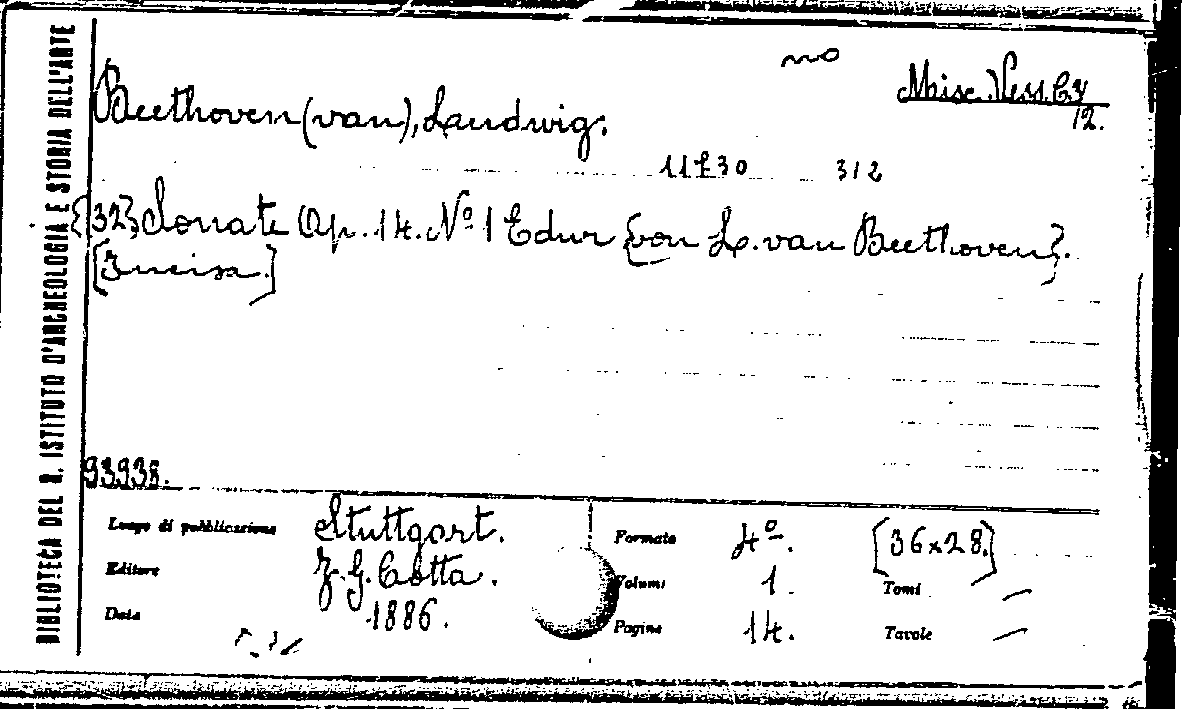 BIBLIOTECA DEL R. ISTITUTO D'ARCHEOLOGIA E STORIA DELL'ARTE
no
Misc. Vess. C3
12.
Beethoven (van), Laudwig.
11730 312
{32} Sonate Op. 14. Nº 1 Edur {von L. van Beethoven}.
[Incisa.]
93938.
Luogo di pubblicazione Stuttgart.
Editore J. G. Cotta.
Data 1886.
Formato 4º. [36x28.]
Volumi 1. Tomi —
Pagine 14. Tavole —